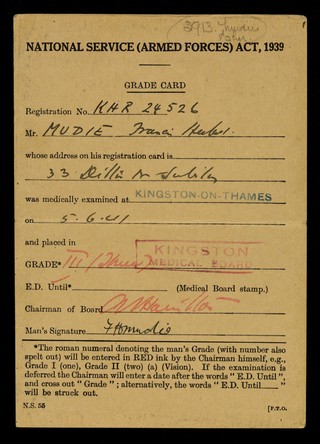 3913.
NATIONAL SERVICE (ARMED FORCES) ACT, 1939
GRADE CARD
Registration No. KHR 24526
Mr. MUDIE Francis
whose address on his registration card is
33
was medically examined at KINGSTON-ON-THAMES
on 5.6.41
and placed in
KINGSTON
MEDICAL BOARD
GRADE* III (Three)
E.D. Until* (Medical Board stamp.)
Chairman of Board
Man's Signature F H Mudie
*The roman numeral denoting the man's Grade (with number also
spelt out) will be entered in RED ink by the Chairman himself, e.g.,
Grade I (one), Grade II (two) (a) (Vision). If the examination is
deferred the Chairman will enter a date after the words " E.D. Until ",
and cross out " Grade " ; alternatively, the words " E.D. Until "
will be struck out.
N.S. 55
[P.T.O.